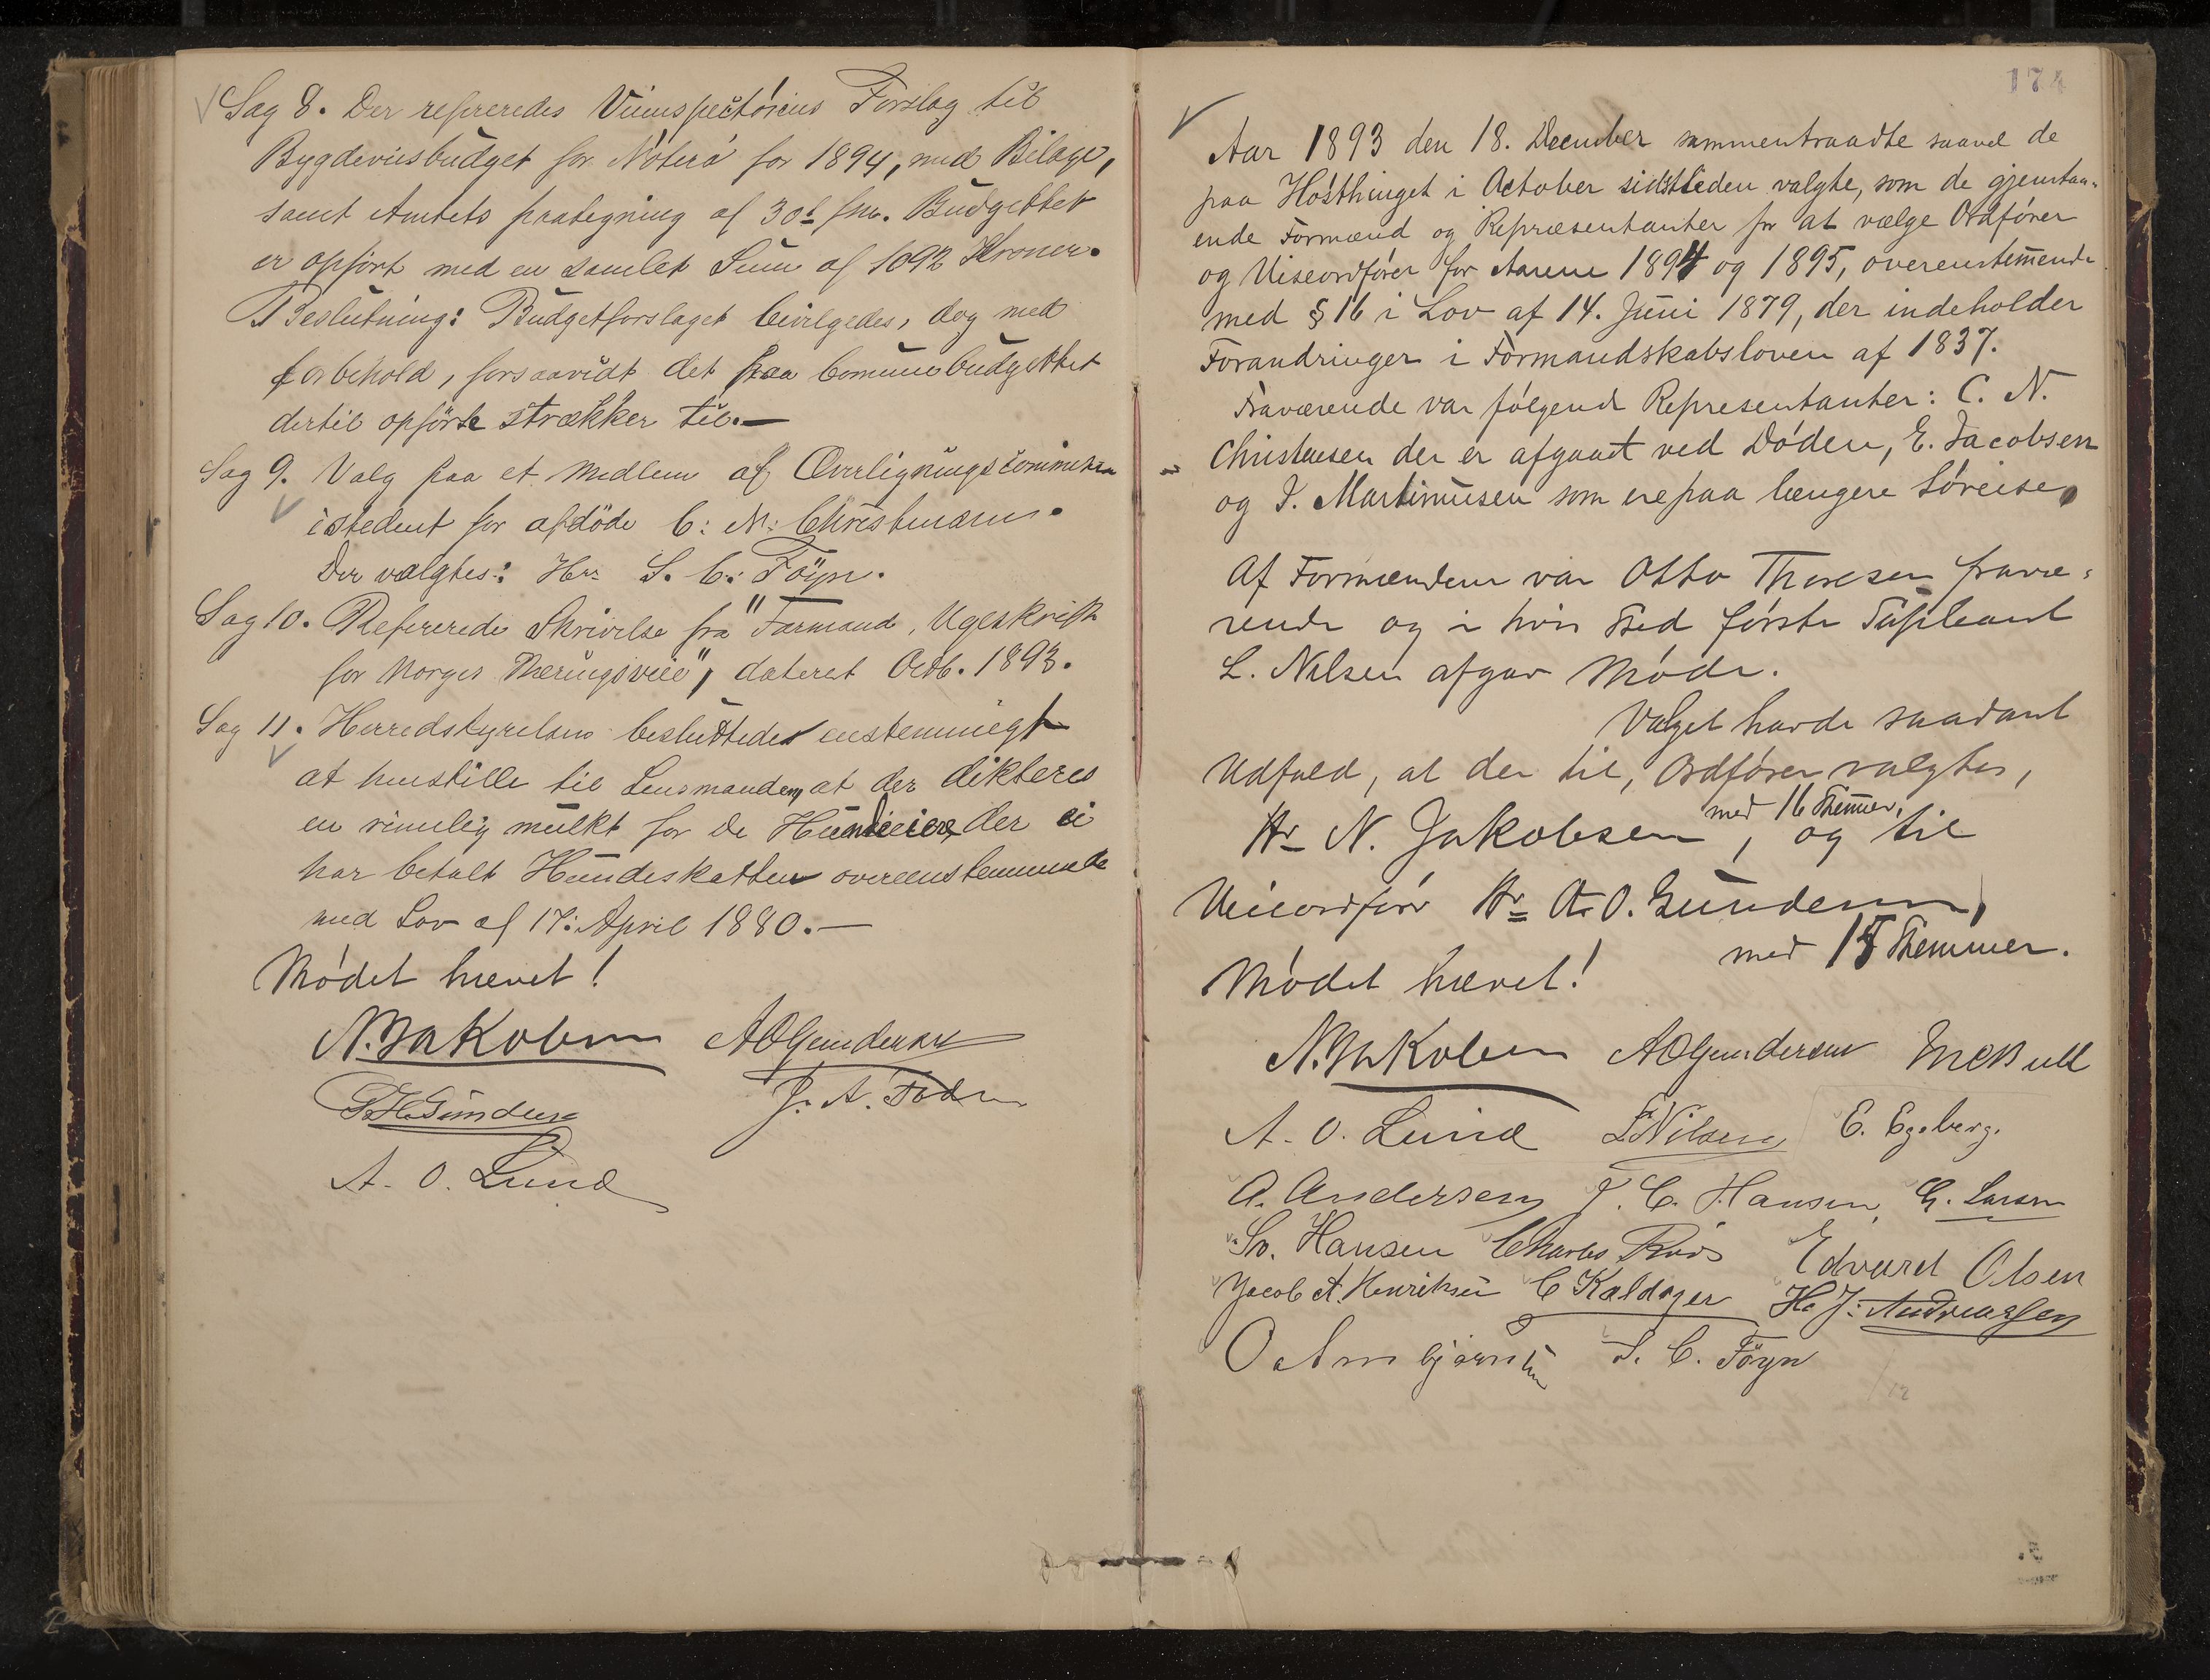 Sag 8. Der refereredes Veiinspectörens Forslag til
Bygdeveisbudget for Nöterö for 1894, med Bilage,
samt Amtets paategning af 30d f.m. Budgettet
er opfört med en samlet Sum af 1092 Kroner.
Beslutning: Budgetforslaget bevilgedes, dog med
forbehold, forsaavidt det paa Comunebudgettet
dertil opförte strækker til.—
Sag 9. Valg paa et Medlem af Overligningscommissen
istedent for afdöde C: N: Christensen.
Der valgtes: Hr: S. C. Föyn.
Sag 10. Refererede Skrivelse fra "Farmand, Ugeskrift
for Norges Næringsveie", dateret Octb. 1893.
Sag 11. Herredstyrelsens besluttedes enstemmigt
at henstille til Lensmanden, at der dikteres
en rimelig mulkt for de Hundeiere, der ei
har betalt Hundeskatten overeenstemmende
med Lov af 17: April 1880.—
Mödet hævet!
N. Jakobsen AOGundersen
P.H.Gundersen J. A. Foden
A. O. Lund
174
Aar 1893 den 18. December sammentraadte saavel de
paa Hösthinget i October sidstleden valgte, som de gjenstaa-
ende Formænd og Repræsentanter for at vælge Ordförer
og Viseordförer for Aarene 1894 og 1895, overenstemmende
med § 16 i Lov af 14. Juni 1879, der indeholder
Forandringer i Formandskabsloven af 1837.
Fraværende var fölgende Representanter: C. N.
Christensen der er afgaaet ved Döden, E. Jacobsen
og J. Martinusen som ere paa længere Söreise.
Af Formændene var Otto Thoresen fravæ-
rende og i hvis Sted förste Supleant
L. Nilsen afgav Möde.
Valget havde saadant
Udfald, at der til, Ordförer valgtes,
Hr N. Jakobsen med 16 Stemmer, og til
Viceordförer Hr A. O. Gundersen,
med 15 Stemmer.
Mödet hævet!
N. Jakobsen AOGundersen Bull
A. O. Lund L Nilsen E. Egeberg.
A. Andersen T. C. Hansen G. Larsen
Sv. Hansen Charles Roos Edvard Olsen
Jacob A. Henriksen C Kaldager H. J. Andreassen
O Arnbjørnsen S. C. Föyn